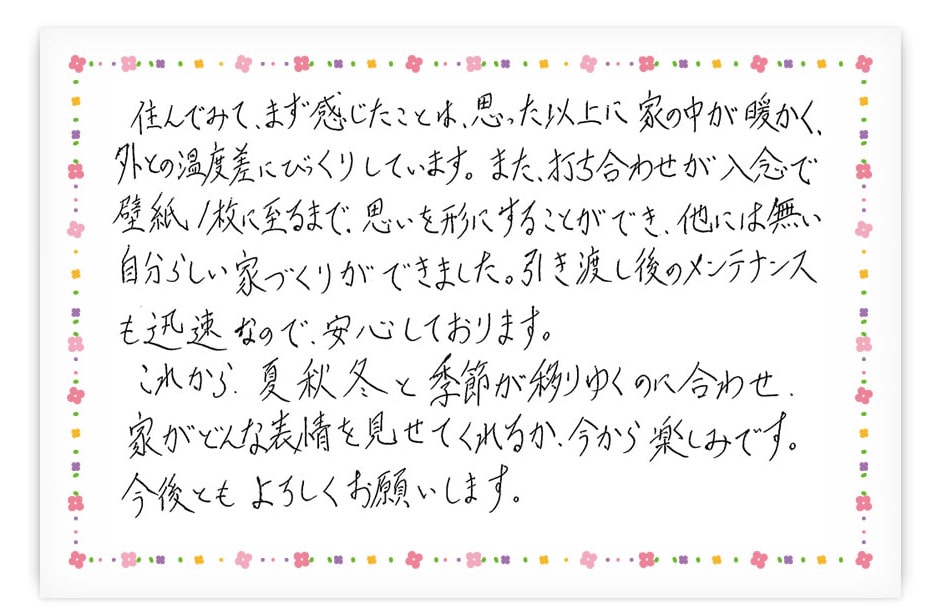 住んでみて、まず感じたことは、思った以上に家の中が暖かく、
外との温度差にびっくりしています。また、打ち合わせが入念で
壁紙1枚に至るまで、思いを形にすることができ、他には無い
自分らしい家づくりができました。引き渡し後のメンテナンス
も迅速なので、安心しております。
これから、夏秋冬と季節が移りゆくのに合わせ、
家がどんな表情を見せてくれるか、今から楽しみです。
今後ともよろしくお願いします。